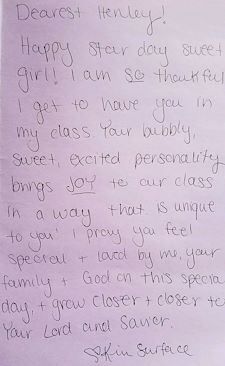 Dearest Henley!
Happy star day sweet
girl! I am SO thankful
I get to have you in
my class. Your bubbly,
sweet, excited personality
brings JOY to our class
in a way that is unique
to you! I pray you feel
special + loved by me, your
family + God on this special
day, + grow closer + closer to
Your Lord and Savior.
♡Kim Surface